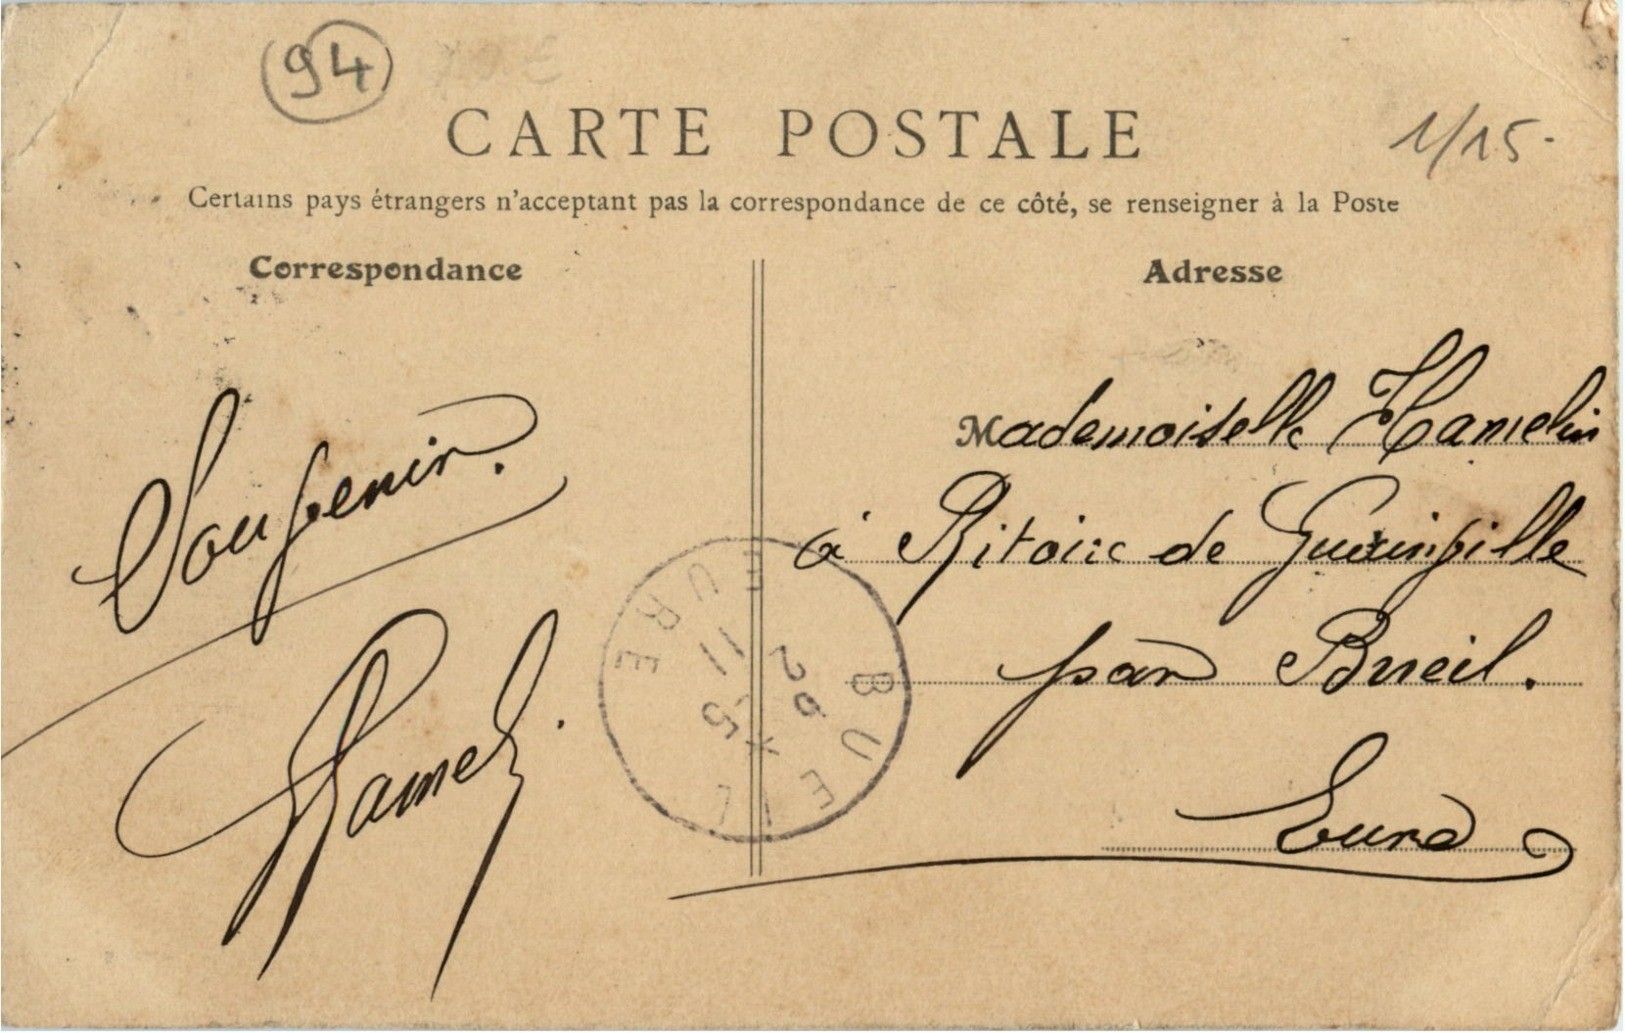 94
CARTE POSTALE
1/15-
Certains pays étrangers n'acceptent pas la correspondance de ce côté, se renseigner à la Poste
Correspondance
Adresse
Souvenir.
Mademoiselle Hamelin
à Ritoire de Guainville
par Bueil.
Eure
BUEIL
EURE
11
20
5